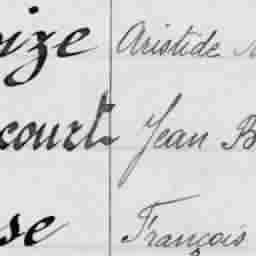 oize Aristide
court Jean B
se François